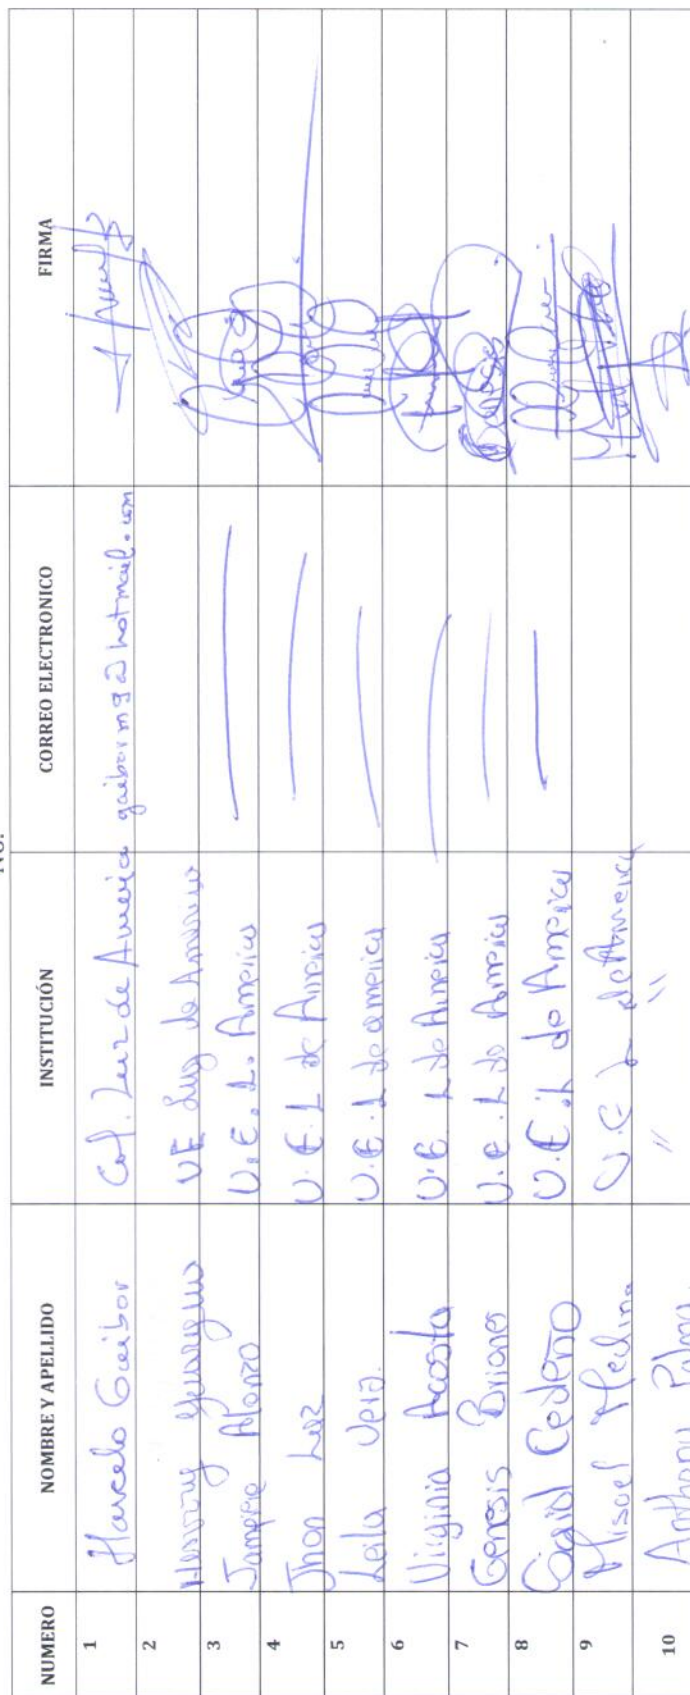 NUMERO NOMBRE Y APELLIDO INSTITUCIÓN CORREO ELECTRONICO FIRMA
1 Marcelo Gaibor Col. Luz de América gaibormg@hotmail.com
2 UE Luz de America
3 Alonzo U.E. L. America
4 Jhon Luz U.E. L de America
5 Leila Vera. U.E. L de america
6 Virginia Acosta U.E L de America
7 Genesis Briones U.E. L de America
8 Cedeño U.E. L de America
9 Misael Medina U.E L de America
10 Anthony " "